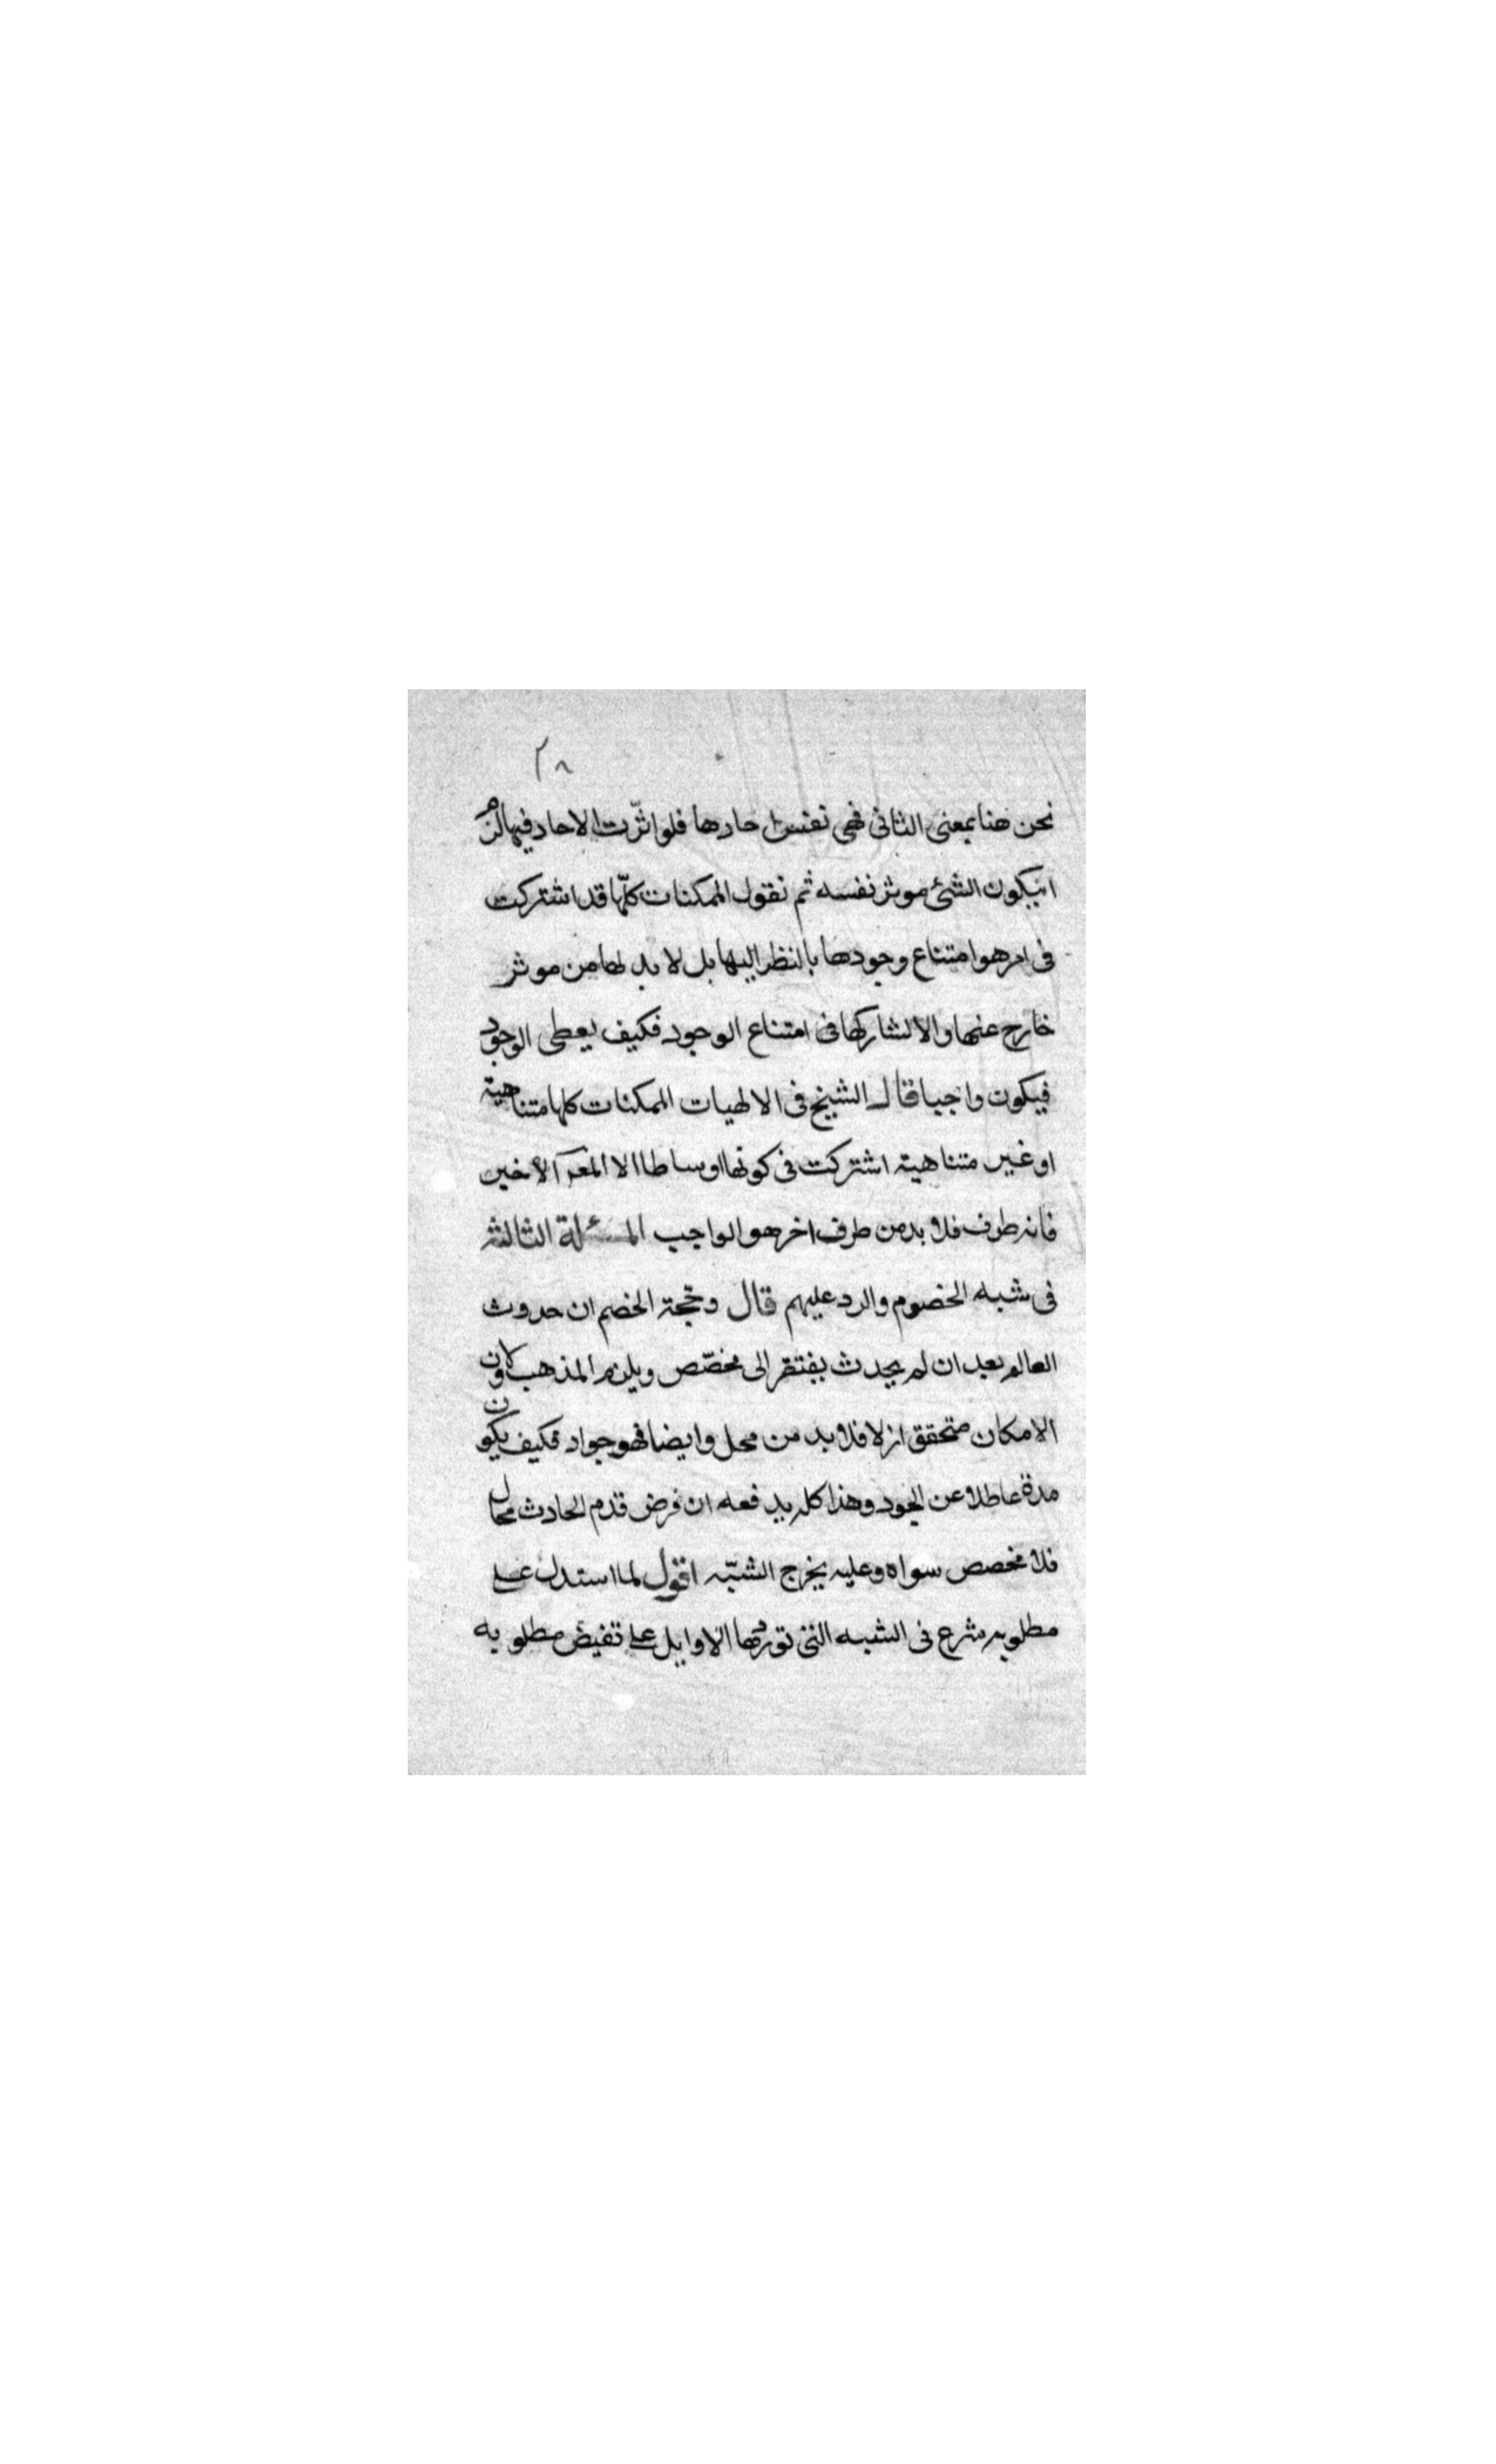 ٢٨
نحن هنا بمعنى الثانى فهى نفس احادها فلو اثّرت الاحاد فيها لزم
ان يكون الشئ موثر نفسه ثم نقول الممكنات كلّها قد اشتركت
فى امر هو امتناع وجودها بالنظر اليها بل لا بد لها من موثر
خارج عنها والا لشاركها فى امتناع الوجود فكيف يعطى الوجود
فيكون واجبا قال الشيخ فى الالهيات الممكنات كلها متناهية
او غير متناهية اشتركت فى كونها اوساطا الا الاخير
فانه طرف فلا بد من طرف اخر هو الواجب المسئلة الثالثة
فى شبه الخصوم والرد عليهم قال وحجة الخصم ان حدوث
العالم بعد ان لم يحدث يفتقر الى مخصّص ويلزم المذهب ولان
الامكان متحقق ازلا فلا بد من محل وايضا فهو جواد فكيف يكون
مدة عاطلا عن الجود وهذا كله يدفعه ان فرض قدم الحادث محال
فلا مخصص سواه وعليه يخرج الشبّه اقول لما استدل على
مطلوبه شرع فى الشبه التى توردها الاوايل على نقيض مطلوبه